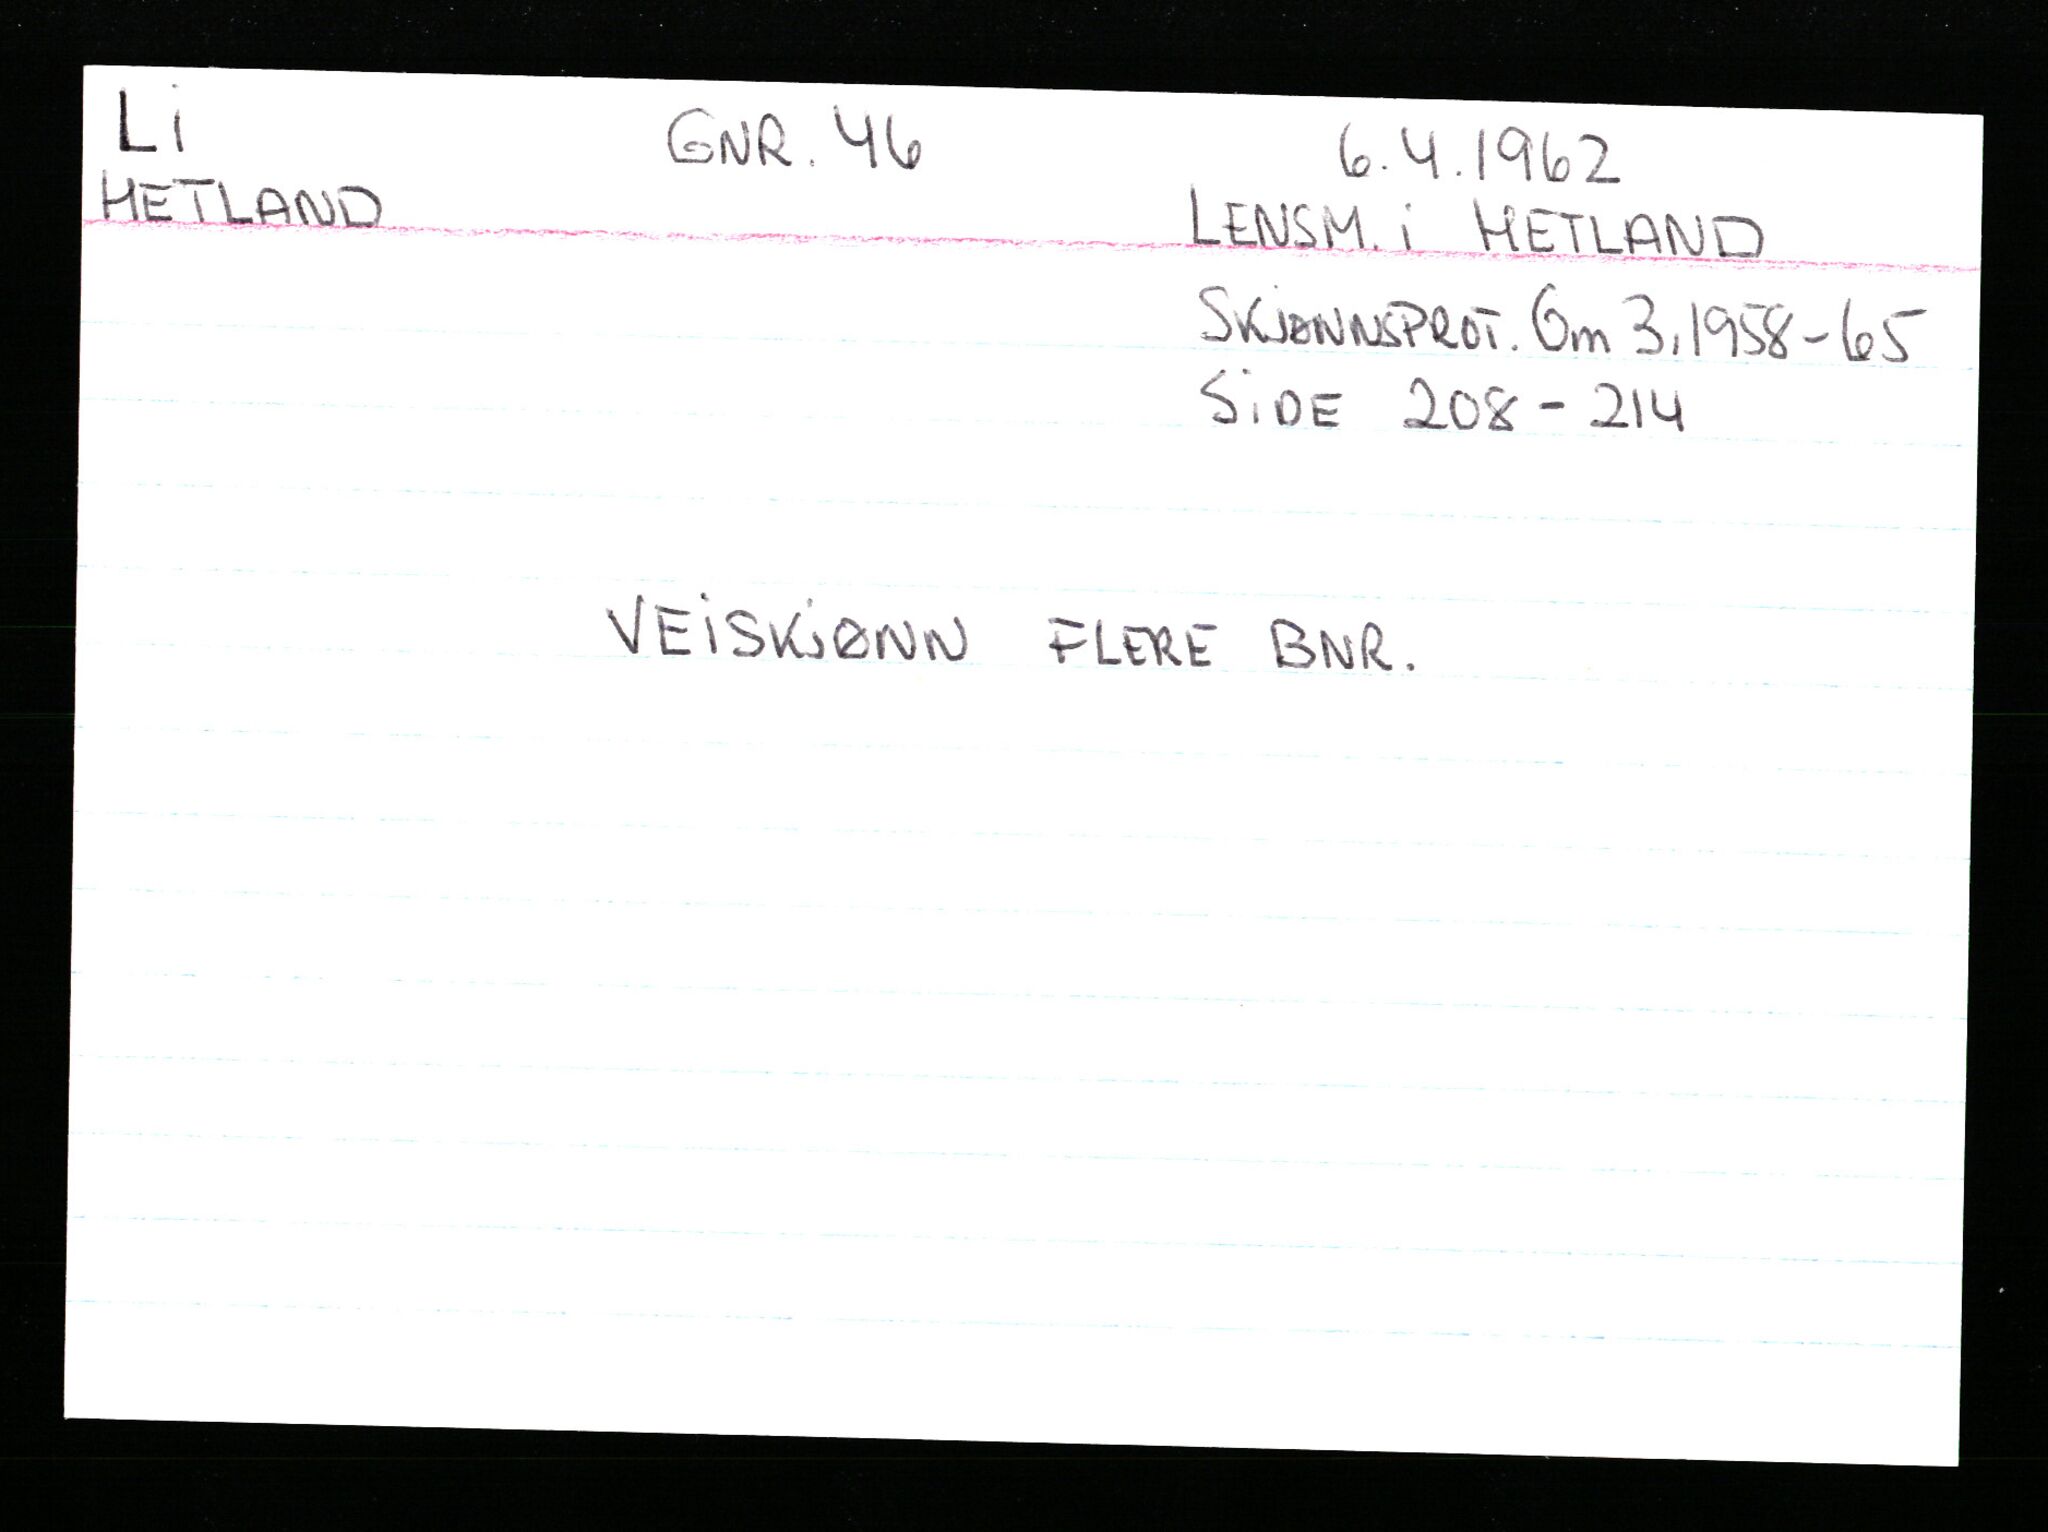 Li GNR. 46 6.4.1962
HETLAND LENSM. i HETLAND
SKJØNNSPROT. Om 3, 1958-65
SiDE 208 - 214
VEiSKJØNN FLERE BNR.